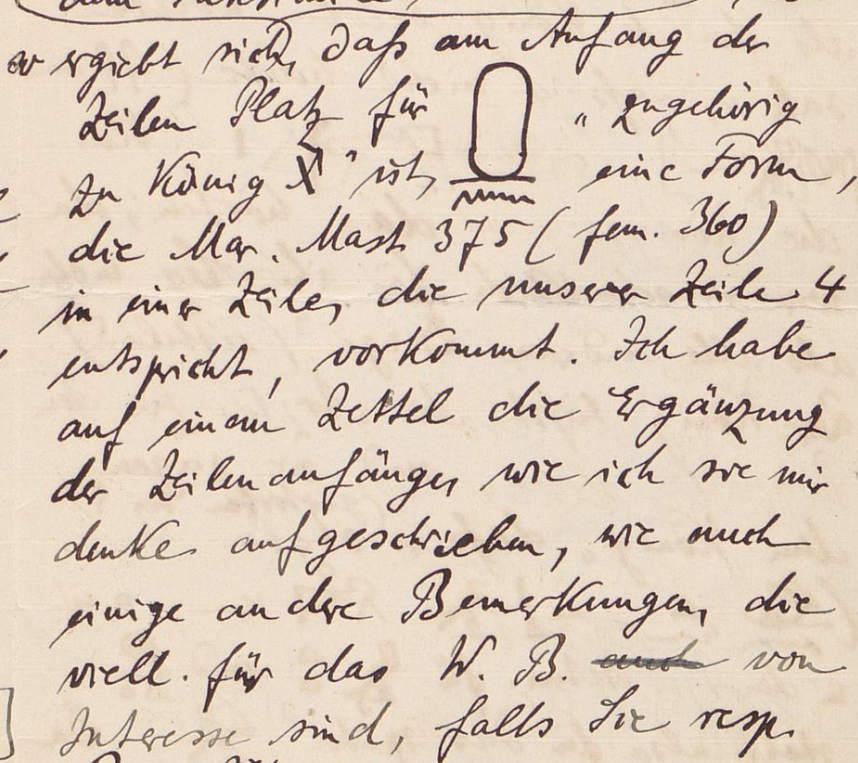 ergiebt sich, daß am Anfang der
Zeilen Platz für „ zugehörig
zu König X" ist, eine Form,
die Mar. Mast 375 (fem. 360)
in einer Zeile, die unserer Zeile 4
entspricht, vorkommt. Ich habe
auf einem Zettel die Ergänzung
der Zeilenanfänge, wie ich sie mir
denke aufgeschrieben, wie auch
einige andere Bemerkungen, die
viell. für das W. B. auch von
Interesse sind, falls Sie resp.